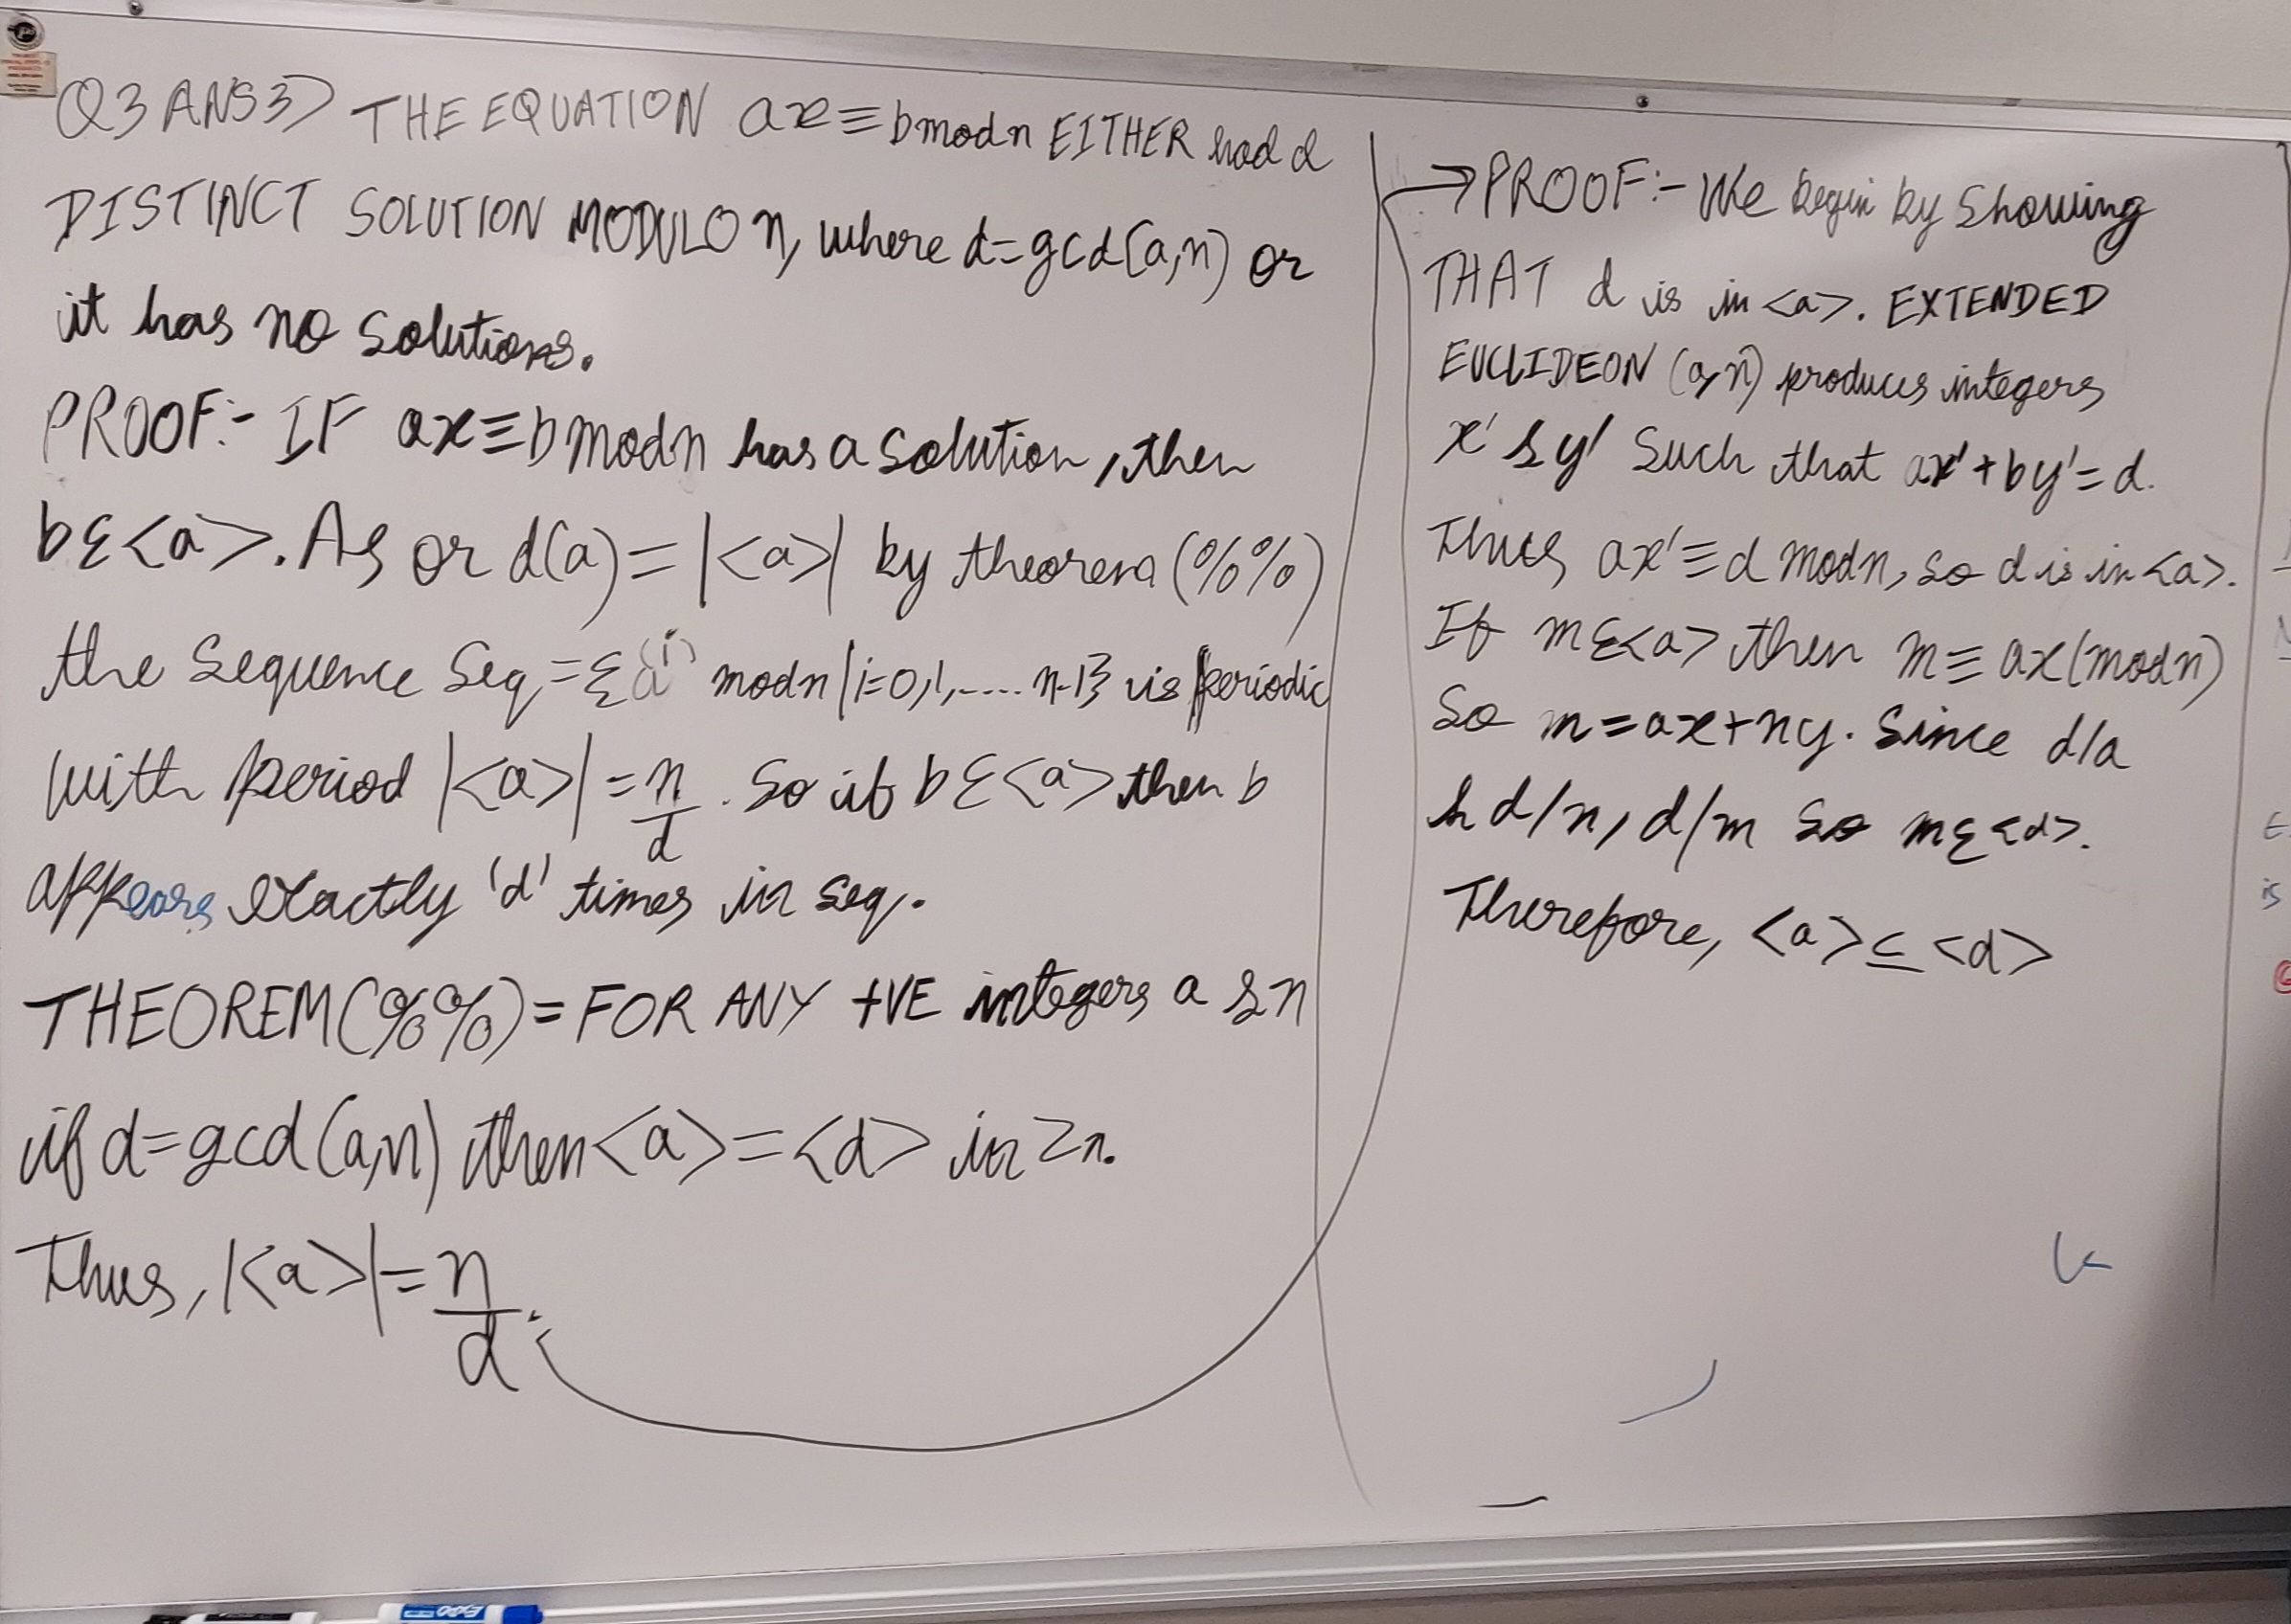 Q3 ANS3) THE EQUATION ax≡bmodn EITHER had d
DISTINCT SOLUTION MODULO n, where d=gcd(a,n) or
it has no solutions.
PROOF:- IF ax≡bmodn has a solution, then
bε<a>. As or d(a)=|<a>| by theorem (%%)
the sequence Seq={a⁽ⁱ⁾ modn|i=0,1,.....n-1} is periodic
with period |<a>|=n/d. So if bε<a> then b
appears exactly 'd' times in seq.
THEOREM(%%)=FOR ANY +VE integers a & n
if d=gcd(a,n) then <a>=<d> in Zn.
Thus, |<a>|=n/d.
→PROOF:- We begin by showing
THAT d is in <a>. EXTENDED
EUCLIDEON (a,n) produces integers
x' & y' Such that ax'+by'=d.
Thus ax'≡d modn, so d is in <a>.
If mε<a> then m≡ax(modn)
So m=ax+ny. Since d/a
& d/n, d/m So mε<d>.
Therefore, <a>⊆<d>
is